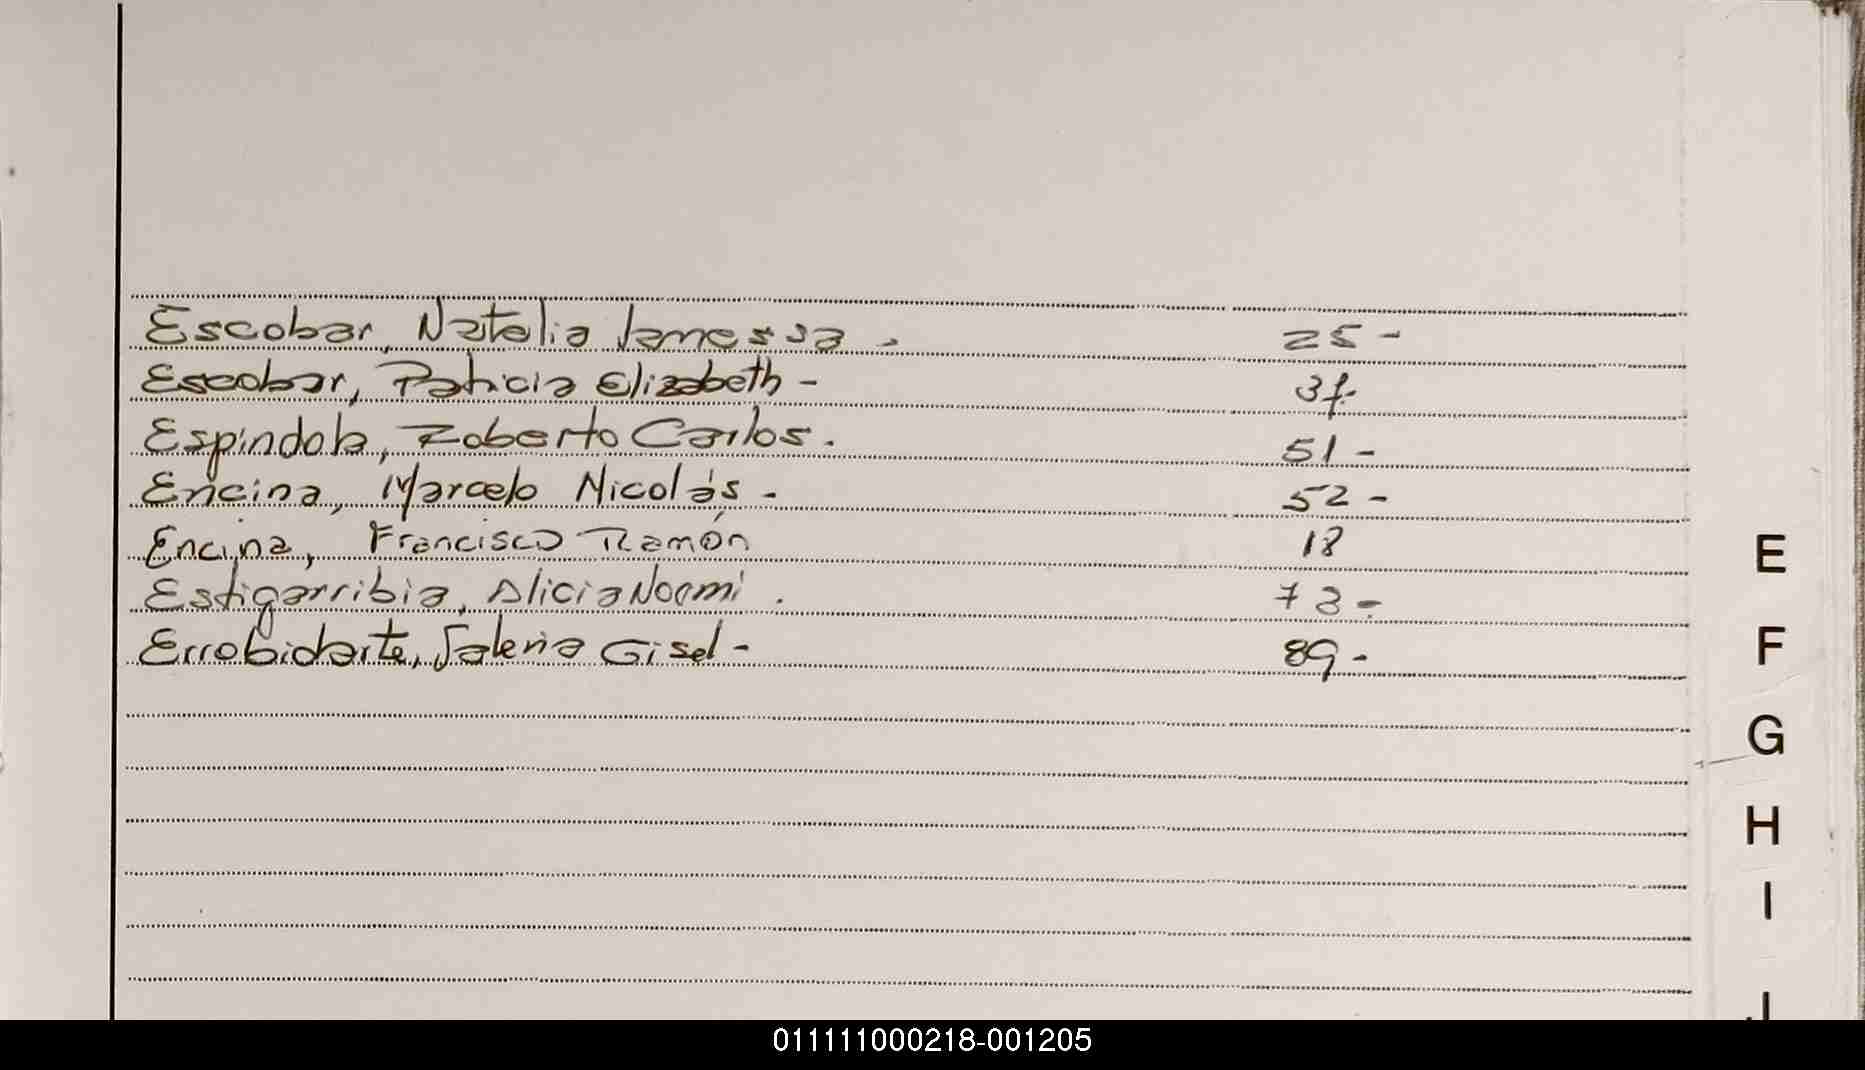 Escobar, Natalia Vanessa - 25 -
Escobar, Patricia Elizabeth - 37-
Espindola, Roberto Carlos. 51 -
Encina, Marcelo Nicolás - 52 -
Encina, Francisco Ramón 18
Estigarribia, Alicia Noemí . 73 -
Errobidarte, Valeria Gisel - 89 -
E
F
G
H
I
J
011111000218-001205